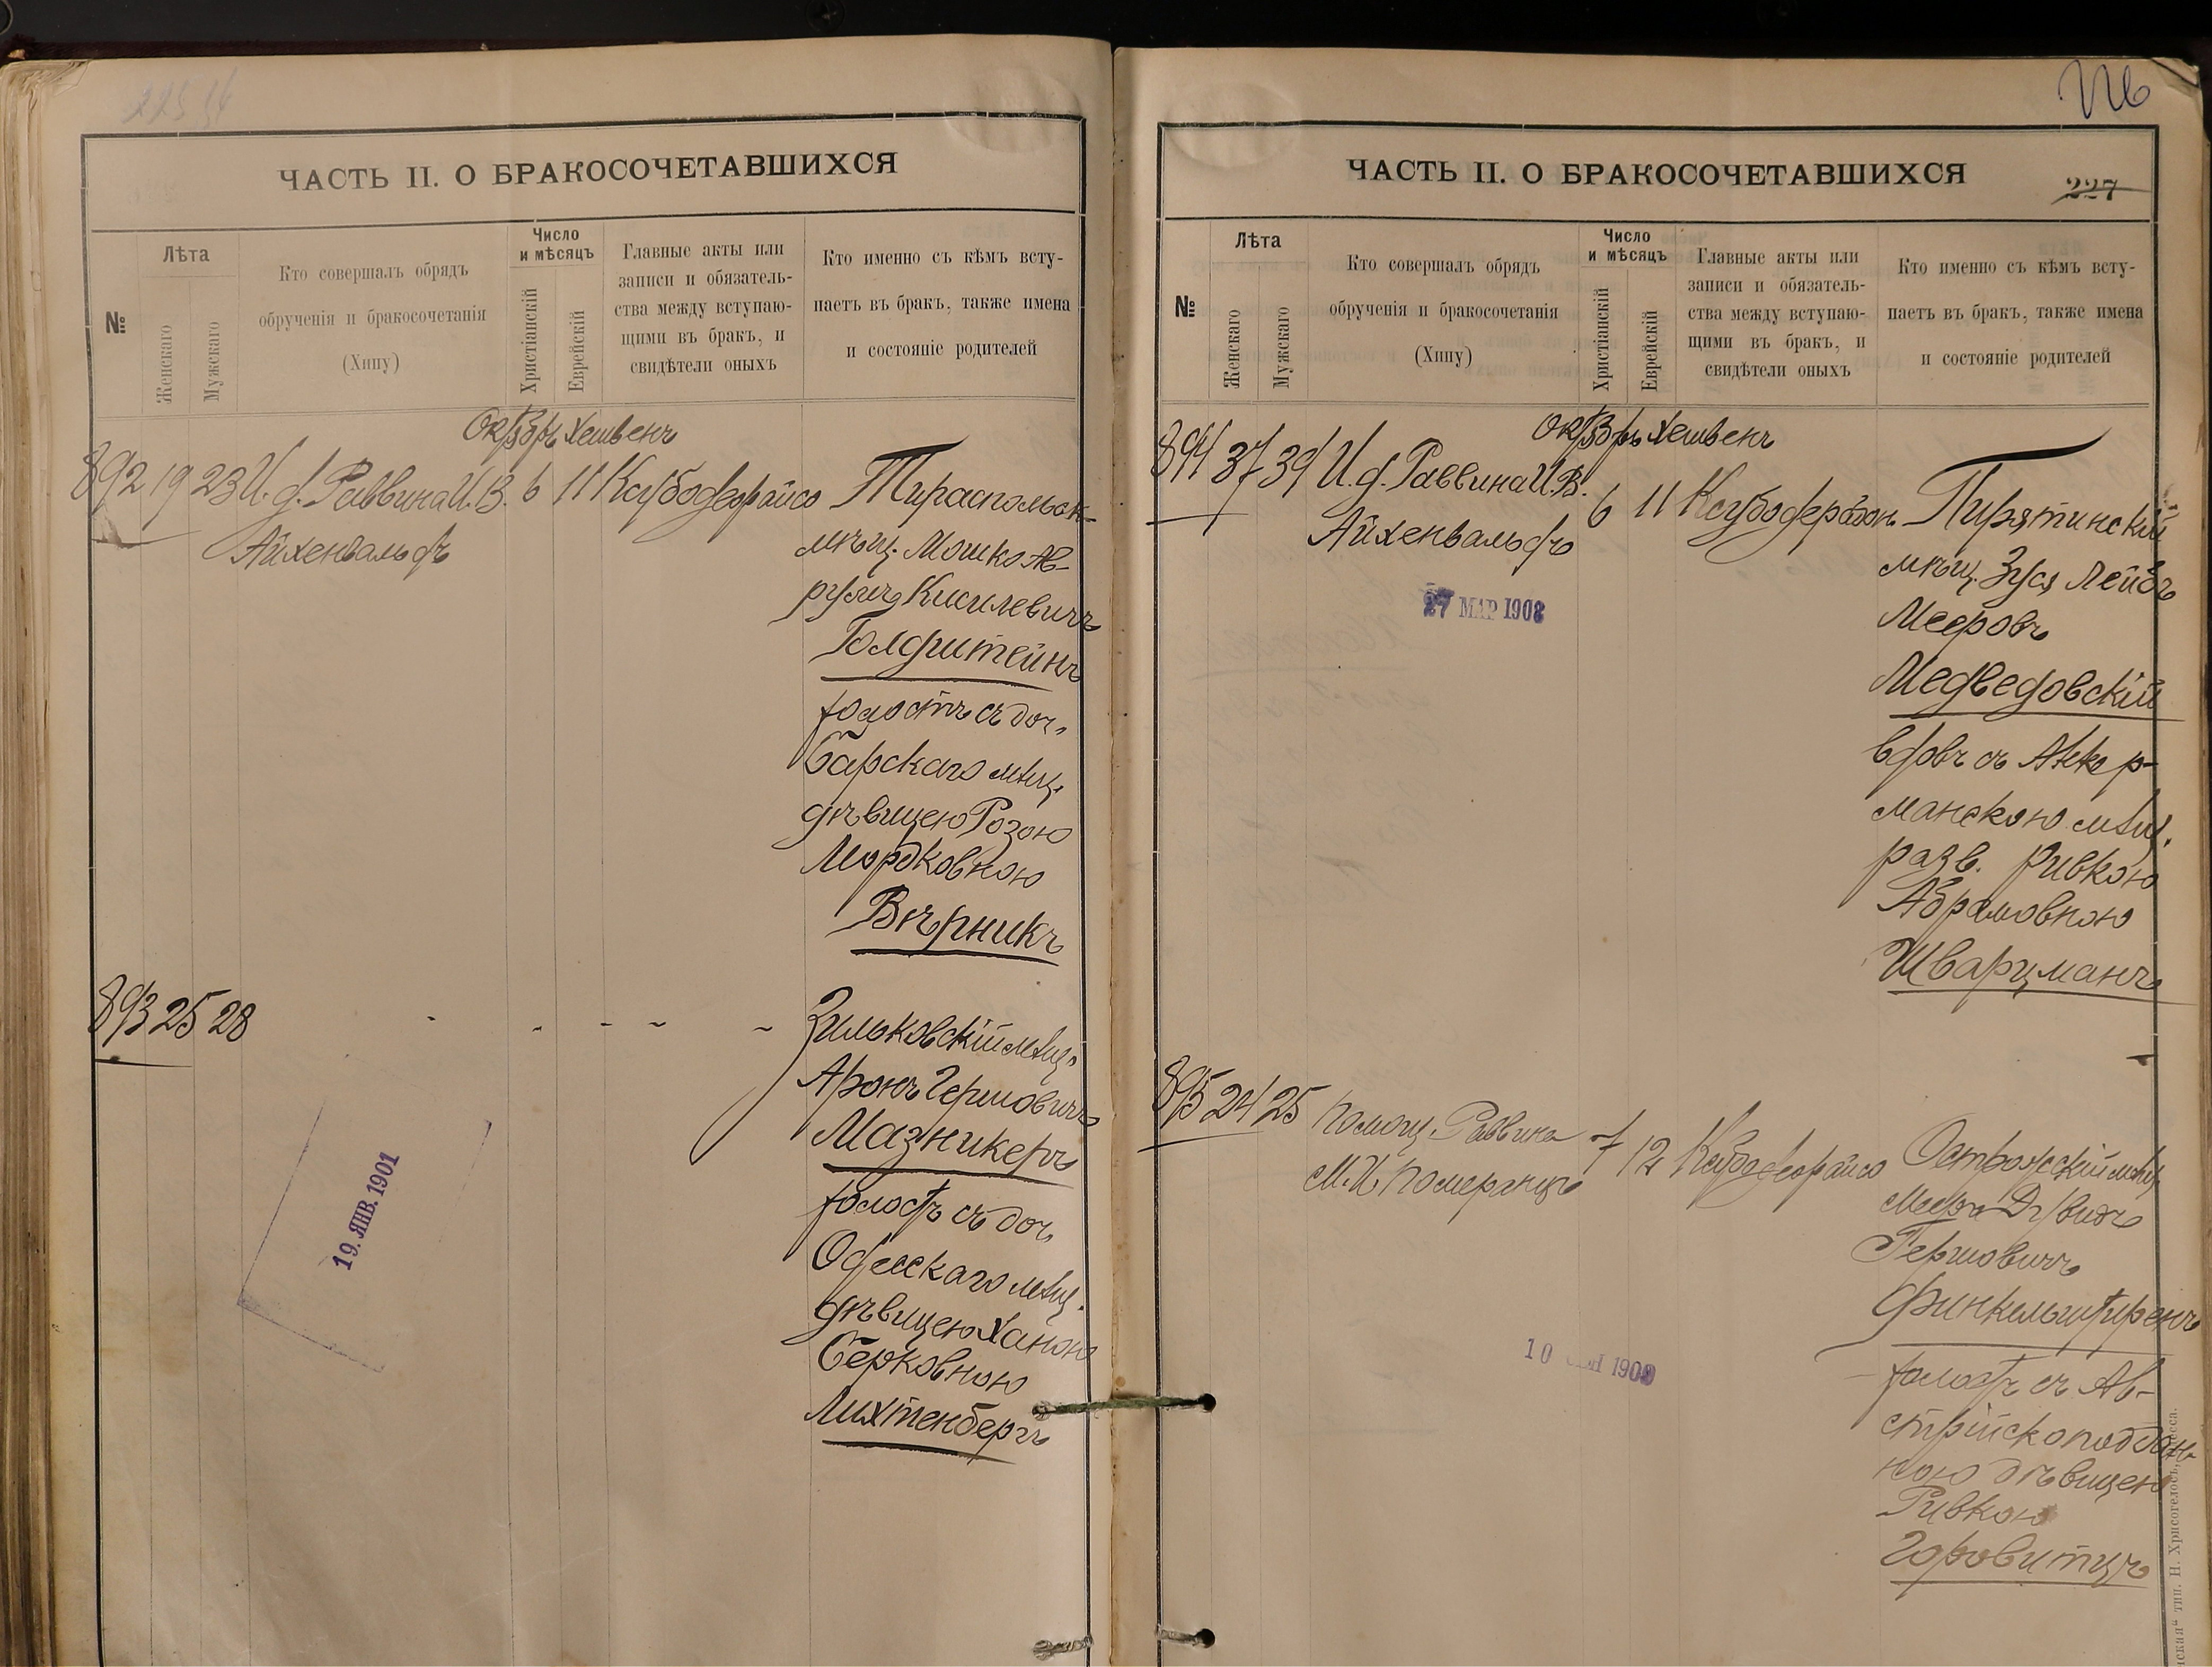 ЧАСТЬ II. О БРАКОСОЧЕТАВШИХСЯ
№
Лѣта
Женскаго
Мужскаго
Кто совершалъ обрядъ
обрученія и бракосочетанія
(Хипу)
Число
и мѣсяцъ
Христіанскій
Еврейскій
Главные акты или
записи и обязатель-
ства между вступаю-
щими въ бракъ, и
свидѣтели оныхъ
Кто именно съ кѣмъ всту-
паетъ въ бракъ, также имена
и состояніе родителей
Октябрь Хешвенъ
892 19 23 И. д. Раввина И. В. 6 11
Айхенвальдъ
мѣщ. Мошко Ав-
румъ Киселевичъ
Голдштейнъ
холостъ съ доч.
Барскаго мѣщ.
дѣвицею Розою
Мордковною
Вѣрникъ
893 25 28 - - - - -
Зиньковскій мѣщ.
Аронъ Гершовичъ
Мазникеръ
холостъ съ доч.
Одесскаго мѣщ.
дѣвицею Ханою
Берковною
Лихтенбергъ
19. ЯНВ. 1901
226
ЧАСТЬ II. О БРАКОСОЧЕТАВШИХСЯ
227
№
Лѣта
Женскаго
Мужскаго
Кто совершалъ обрядъ
обрученія и бракосочетанія
(Хипу)
Число
и мѣсяцъ
Христіанскій
Еврейскій
Главные акты или
записи и обязатель-
ства между вступаю-
щими въ бракъ, и
свидѣтели оныхъ
Кто именно съ кѣмъ всту-
паетъ въ бракъ, также имена
и состояніе родителей
Октябрь Хешвенъ
894 37 39 И. д. Раввина И. В. 6 11
Айхенвальдъ
27 МАР 1908
Пирятинскій
мѣщ. Зуся Лейбъ
Мееровъ
Медведовскій
вдовъ съ Аккер-
манскою мѣщ.
разв. Ривкою
Абрамовною
Шварцманъ
895 24 25 Помощ. Раввина 7 12
М. И. Померанцъ
10 1908
Острожскій мѣщ.
Мееръ Довидъ
Гершовичъ
Финкельштеренъ
холостъ съ Ав-
стрійскоподдан-
ною дѣвицею
Ривкою
Горовитцъ
тип. Н. Хрисогелосъ, Одесса.